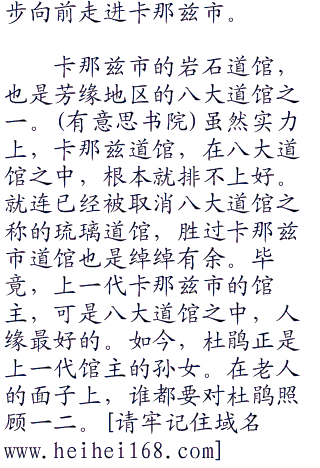 步向前走进卡那兹市。
卡那兹市的岩石道馆，
也是芳缘地区的八大道馆之
一。(有意思书院)虽然实力
上，卡那兹道馆，在八大道
馆之中，根本就排不上好。
就连已经被取消八大道馆之
称的琉璃道馆，胜过卡那兹
市道馆也是绰绰有余。毕
竟，上一代卡那兹市的馆
主，可是八大道馆之中，人
缘最好的。如今，杜鹃正是
上一代馆主的孙女。在老人
的面子上，谁都要对杜鹃照
顾一二。[请牢记住域名
www.heihei168.com]